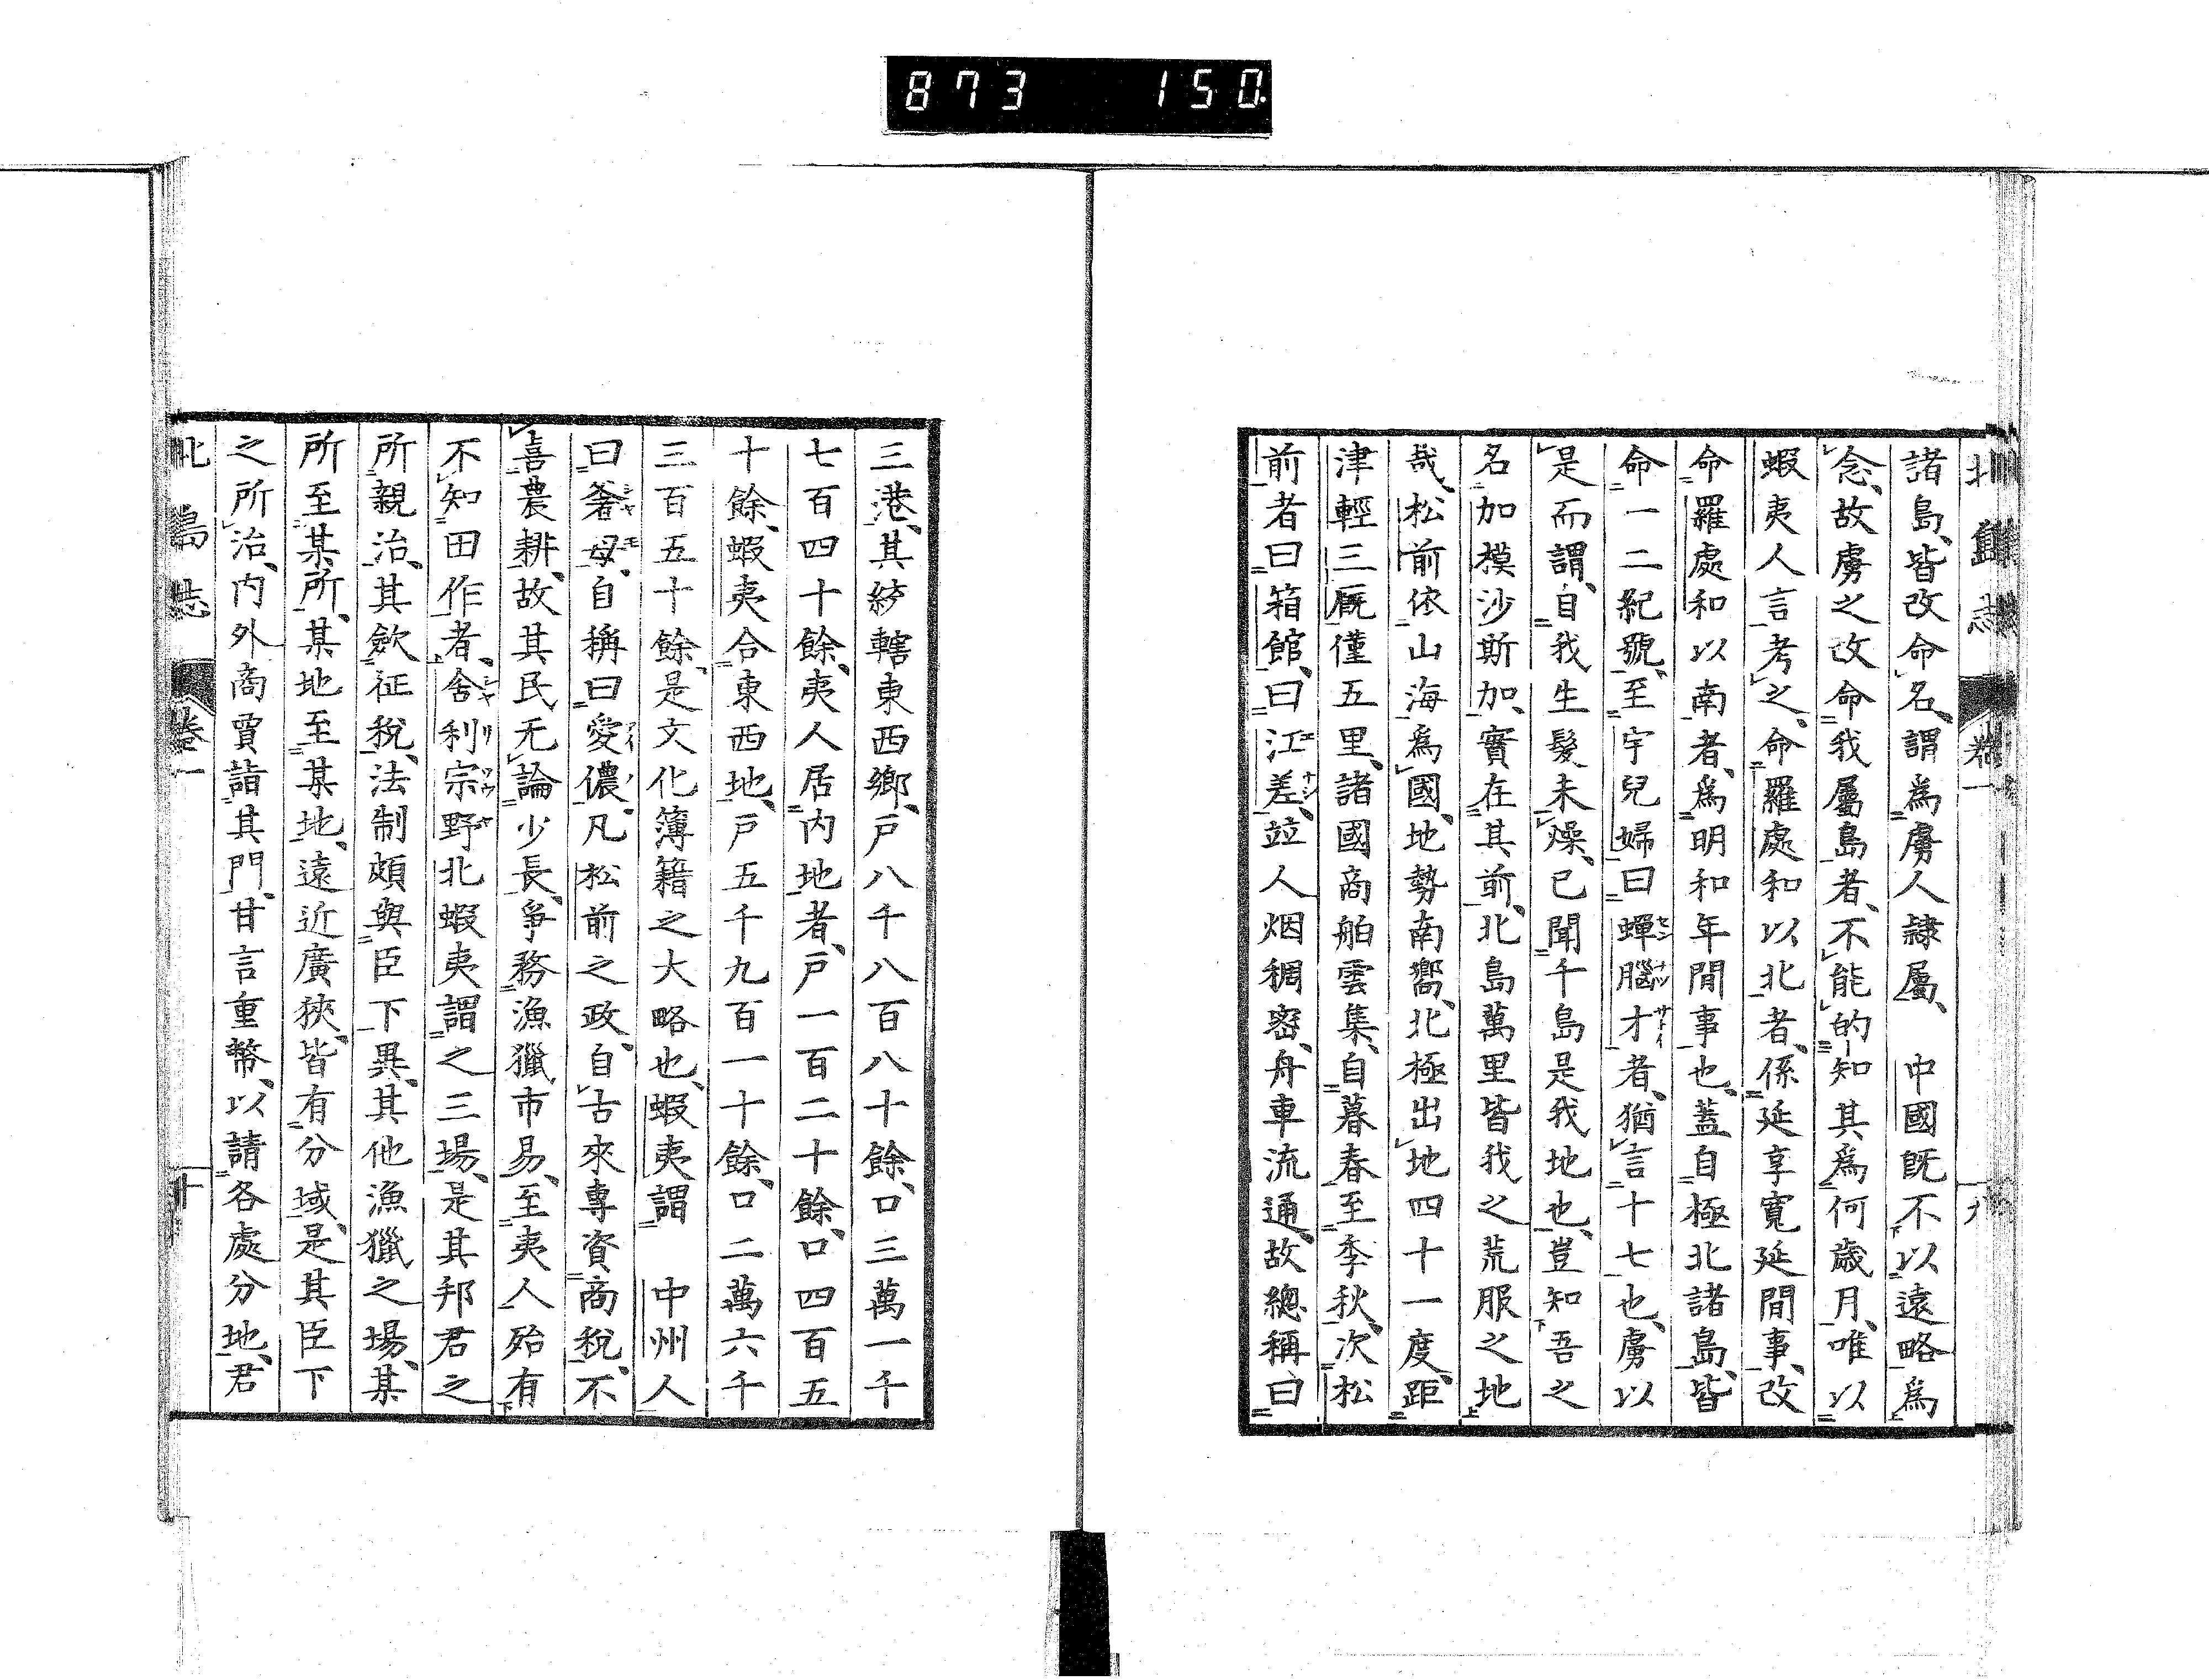 873 150
北島志 卷一 九
諸島、皆改命名、謂爲虜人隷屬、 中國既不以遠略爲
念、故虜之改命我屬島者、不能的知其爲何歳月、唯以
蝦夷人言考之、命羅處和以北者、係延享寛延間事、改
命羅處和以南者、爲明和年間事也、蓋自極北諸島、皆
命一二紀號、至宇兒婦曰蟬腦才者、猶言十七也、虜以
是而謂、自我生髮未燥、已聞千島是我地也、豈知吾之
名加模沙斯加、實在其前、北島萬里皆我之荒服之地
哉、松前依山海爲國、地勢南嚮、北極出地四十一度、距
津輕三厩僅五里、諸國商舶雲集、自暮春至季秋、次松
前者曰箱館、曰江差、竝人烟稠密、舟車流通、故總稱曰
三港、其統轄東西鄉、戸八千八百八十餘、口三萬一千
七百四十餘、夷人居内地者、戸一百二十餘、口四百五
十餘、蝦夷合東西地、戸五千九百一十餘、口二萬六千
三百五十餘、是文化簿籍之大略也、蝦夷謂 中州人
曰奢母、自稱曰愛儂、凡松前之政、自古來專資商税、不
喜農耕、故其民无論少長、爭務漁獵市易、至夷人殆有
不知田作者、舍利宗野北蝦夷謂之三場、是其邦君之
所親治、其歛征税、法制頗與臣下異、其他漁獵之場、某
所至某所、某地至某地、遠近廣狹、皆有分域、是其臣下
之所治、内外商賈詣其門、甘言重幣、以請各處分地、君
北島志 卷一 十